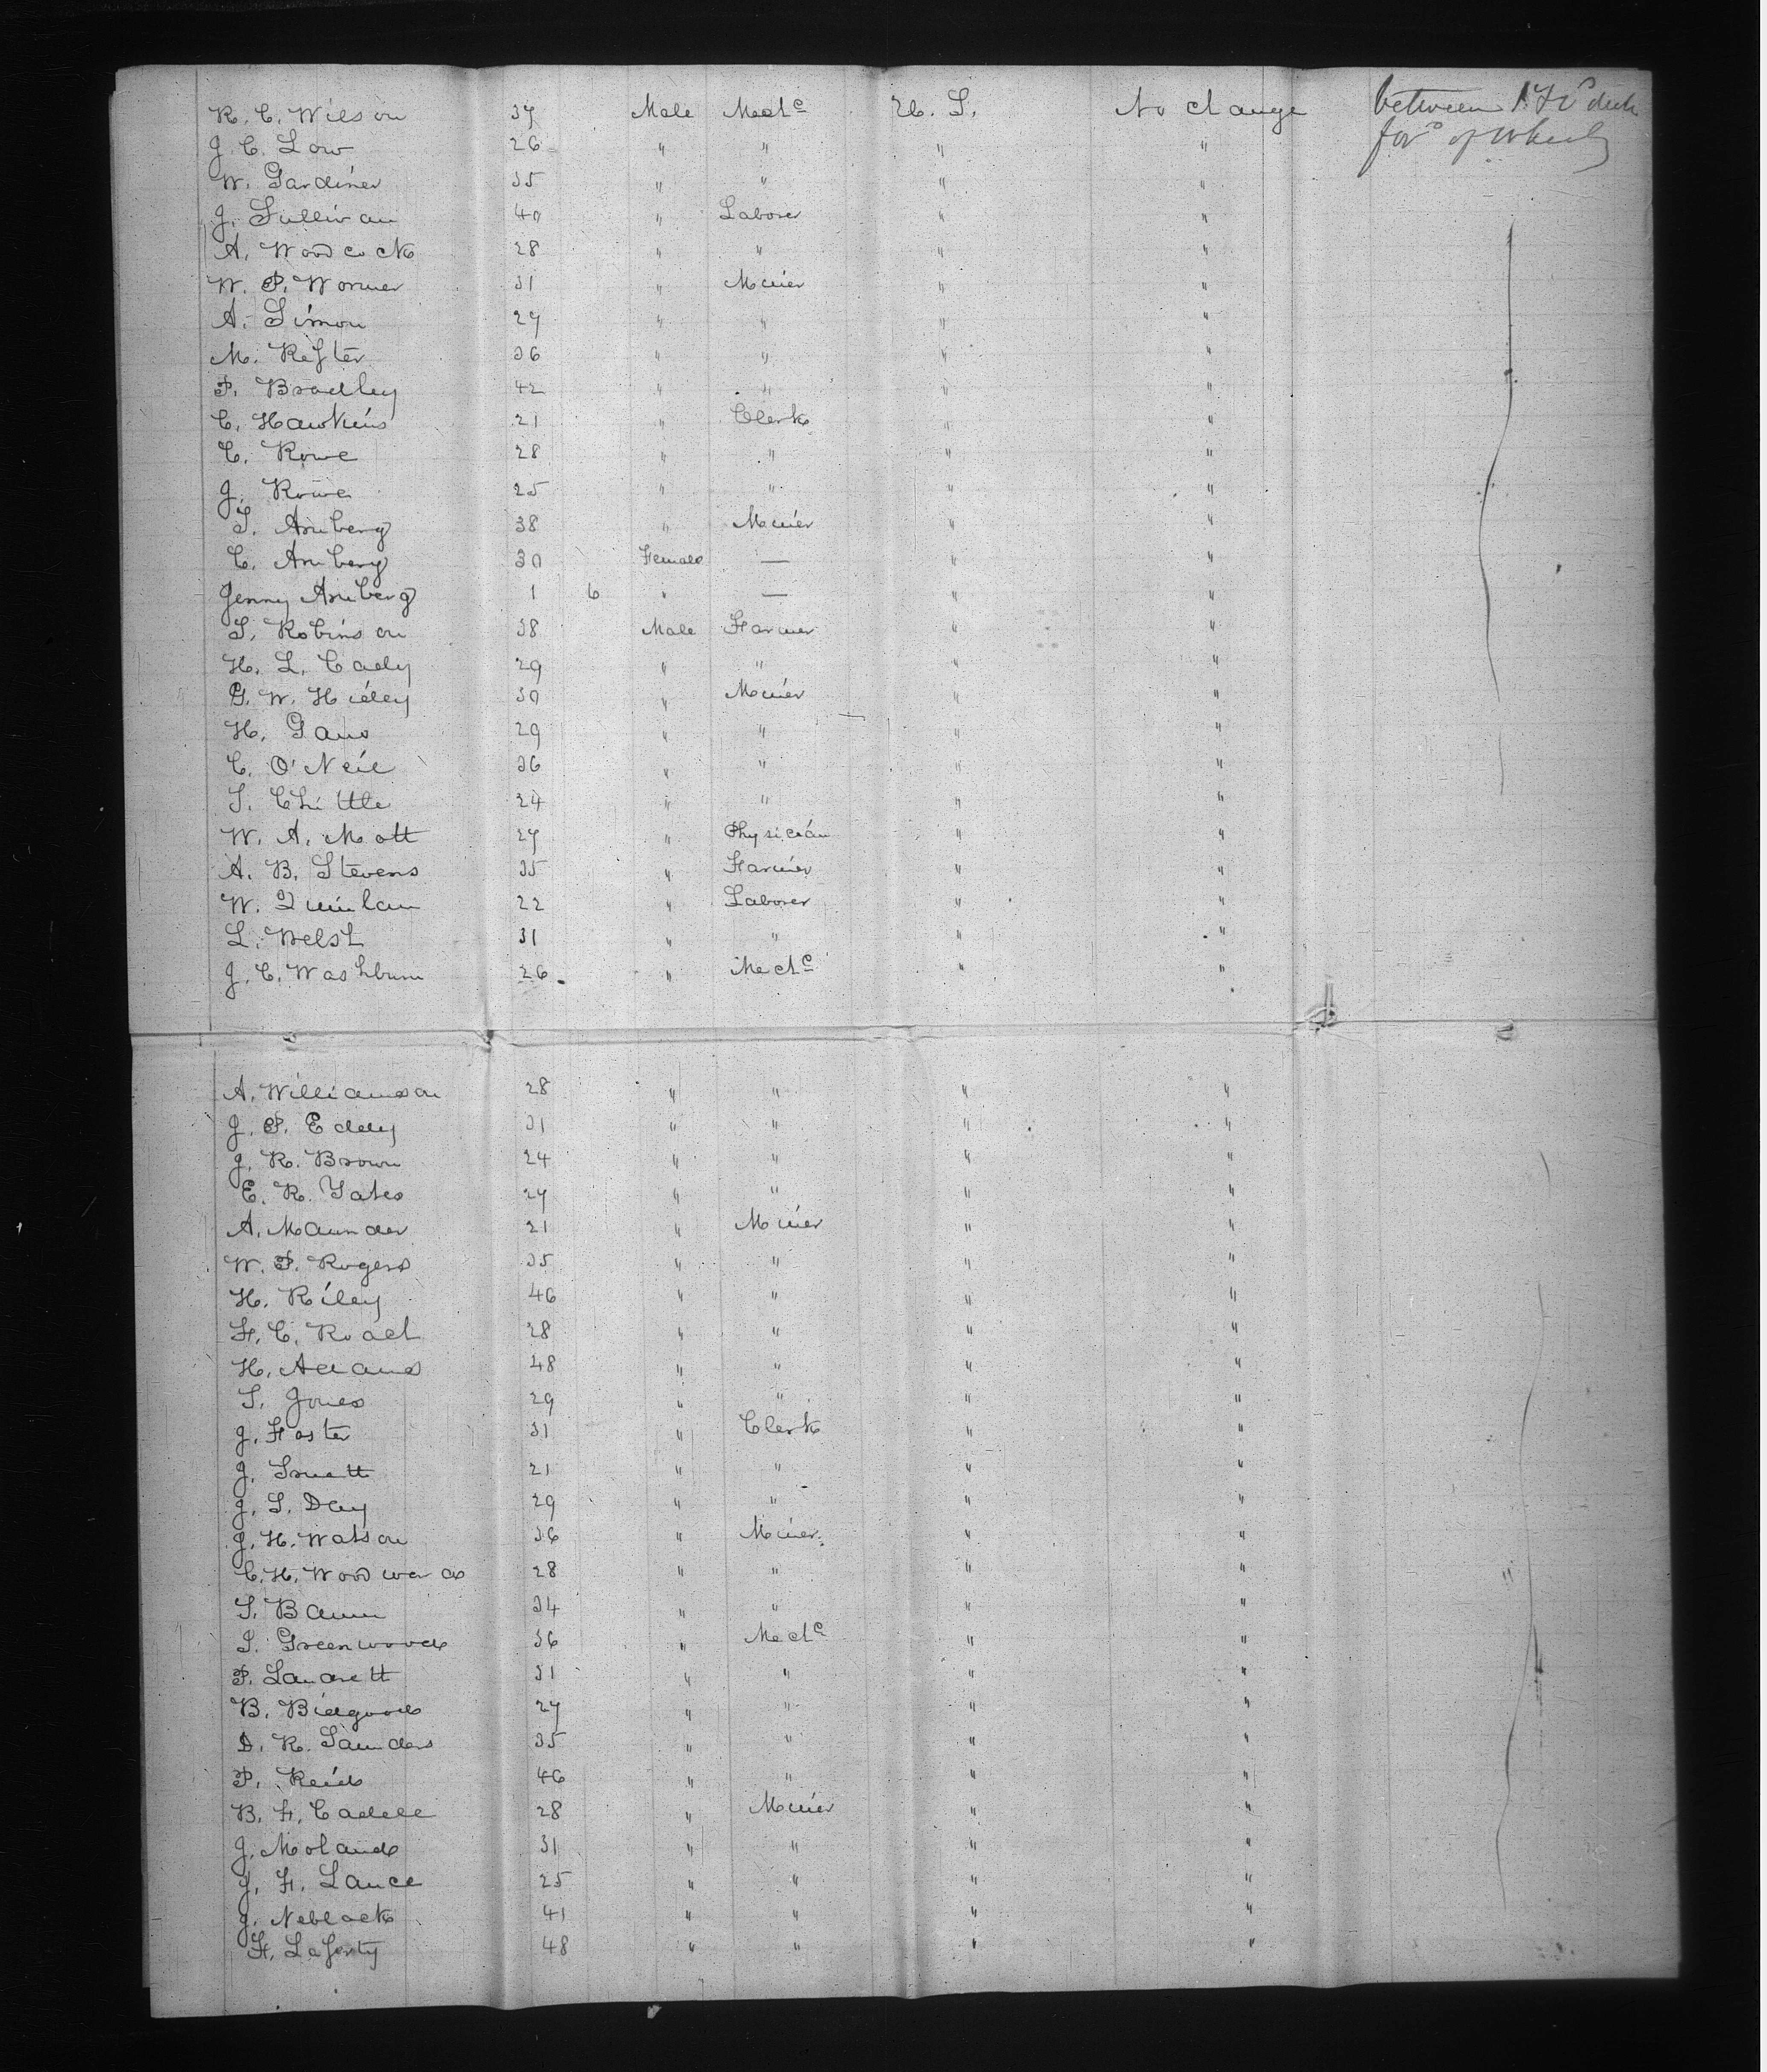 R. C. Wilson 37 Male Mechc U. S. No change between 1st & 2d deck
J. C. Low 26 " " " " ford of Wheels
W. Gardiner 35 " " " "
J. Sullivan 40 " Laborer " "
A. Woodcock 28 " " " "
W. P. Wormer 31 " Miner " "
A. Simon 27 " " " "
M. Refter 36 " " " "
P. Bradley 42 " " " "
C. Hawkins 21 " Clerk " "
C. Rowe 28 " " " "
J. Rowe 25 " " " "
S. Amberg 38 " Miner " "
C. Amberg 30 Female — " "
Jenny Amberg 1 6 " — " "
S. Robinson 38 Male Farmer " "
H. L. Cady 29 " " " "
G. W. Hidey 30 " Miner " "
H. Gans 29 " " " "
C. O'Neil 36 " " " "
S. Chittle 24 " " " "
W. A. Mott 27 " Physician " "
A. B. Stevens 35 " Farmer " "
W. Quinlan 22 " Laborer " "
L. Welsh 31 " " " "
J. C. Washburn 26 " Mechc " "
A. Williamson 28 " " " "
J. P. Eddy 31 " " " "
J. R. Brown 24 " " " "
E. R. Yates 27 " " " "
A. Maunder 21 " Miner " "
W. P. Rogers 35 " " " "
H. Riley 46 " " " "
F. C. Roach 28 " " " "
H. Adams 48 " " " "
S. Jones 29 " " " "
J. Foster 31 " Clerk " "
J. Truett 21 " " " "
J. S. Day 29 " " " "
J. H. Watson 36 " Miner " "
C. H. Woodward 28 " " " "
S. Baum 34 " " " "
S. Greenwood 36 " Mechc " "
P. Landrett 31 " " " "
B. Bidgood 27 " " " "
D. R. Saunders 35 " " " "
P. Reid 46 " " " "
B. F. Cadell 28 " Miner " "
J. Moland 31 " " " "
J. F. Lance 25 " " " "
J. Neblack 41 " " " "
F. Laferty 48 " " " "